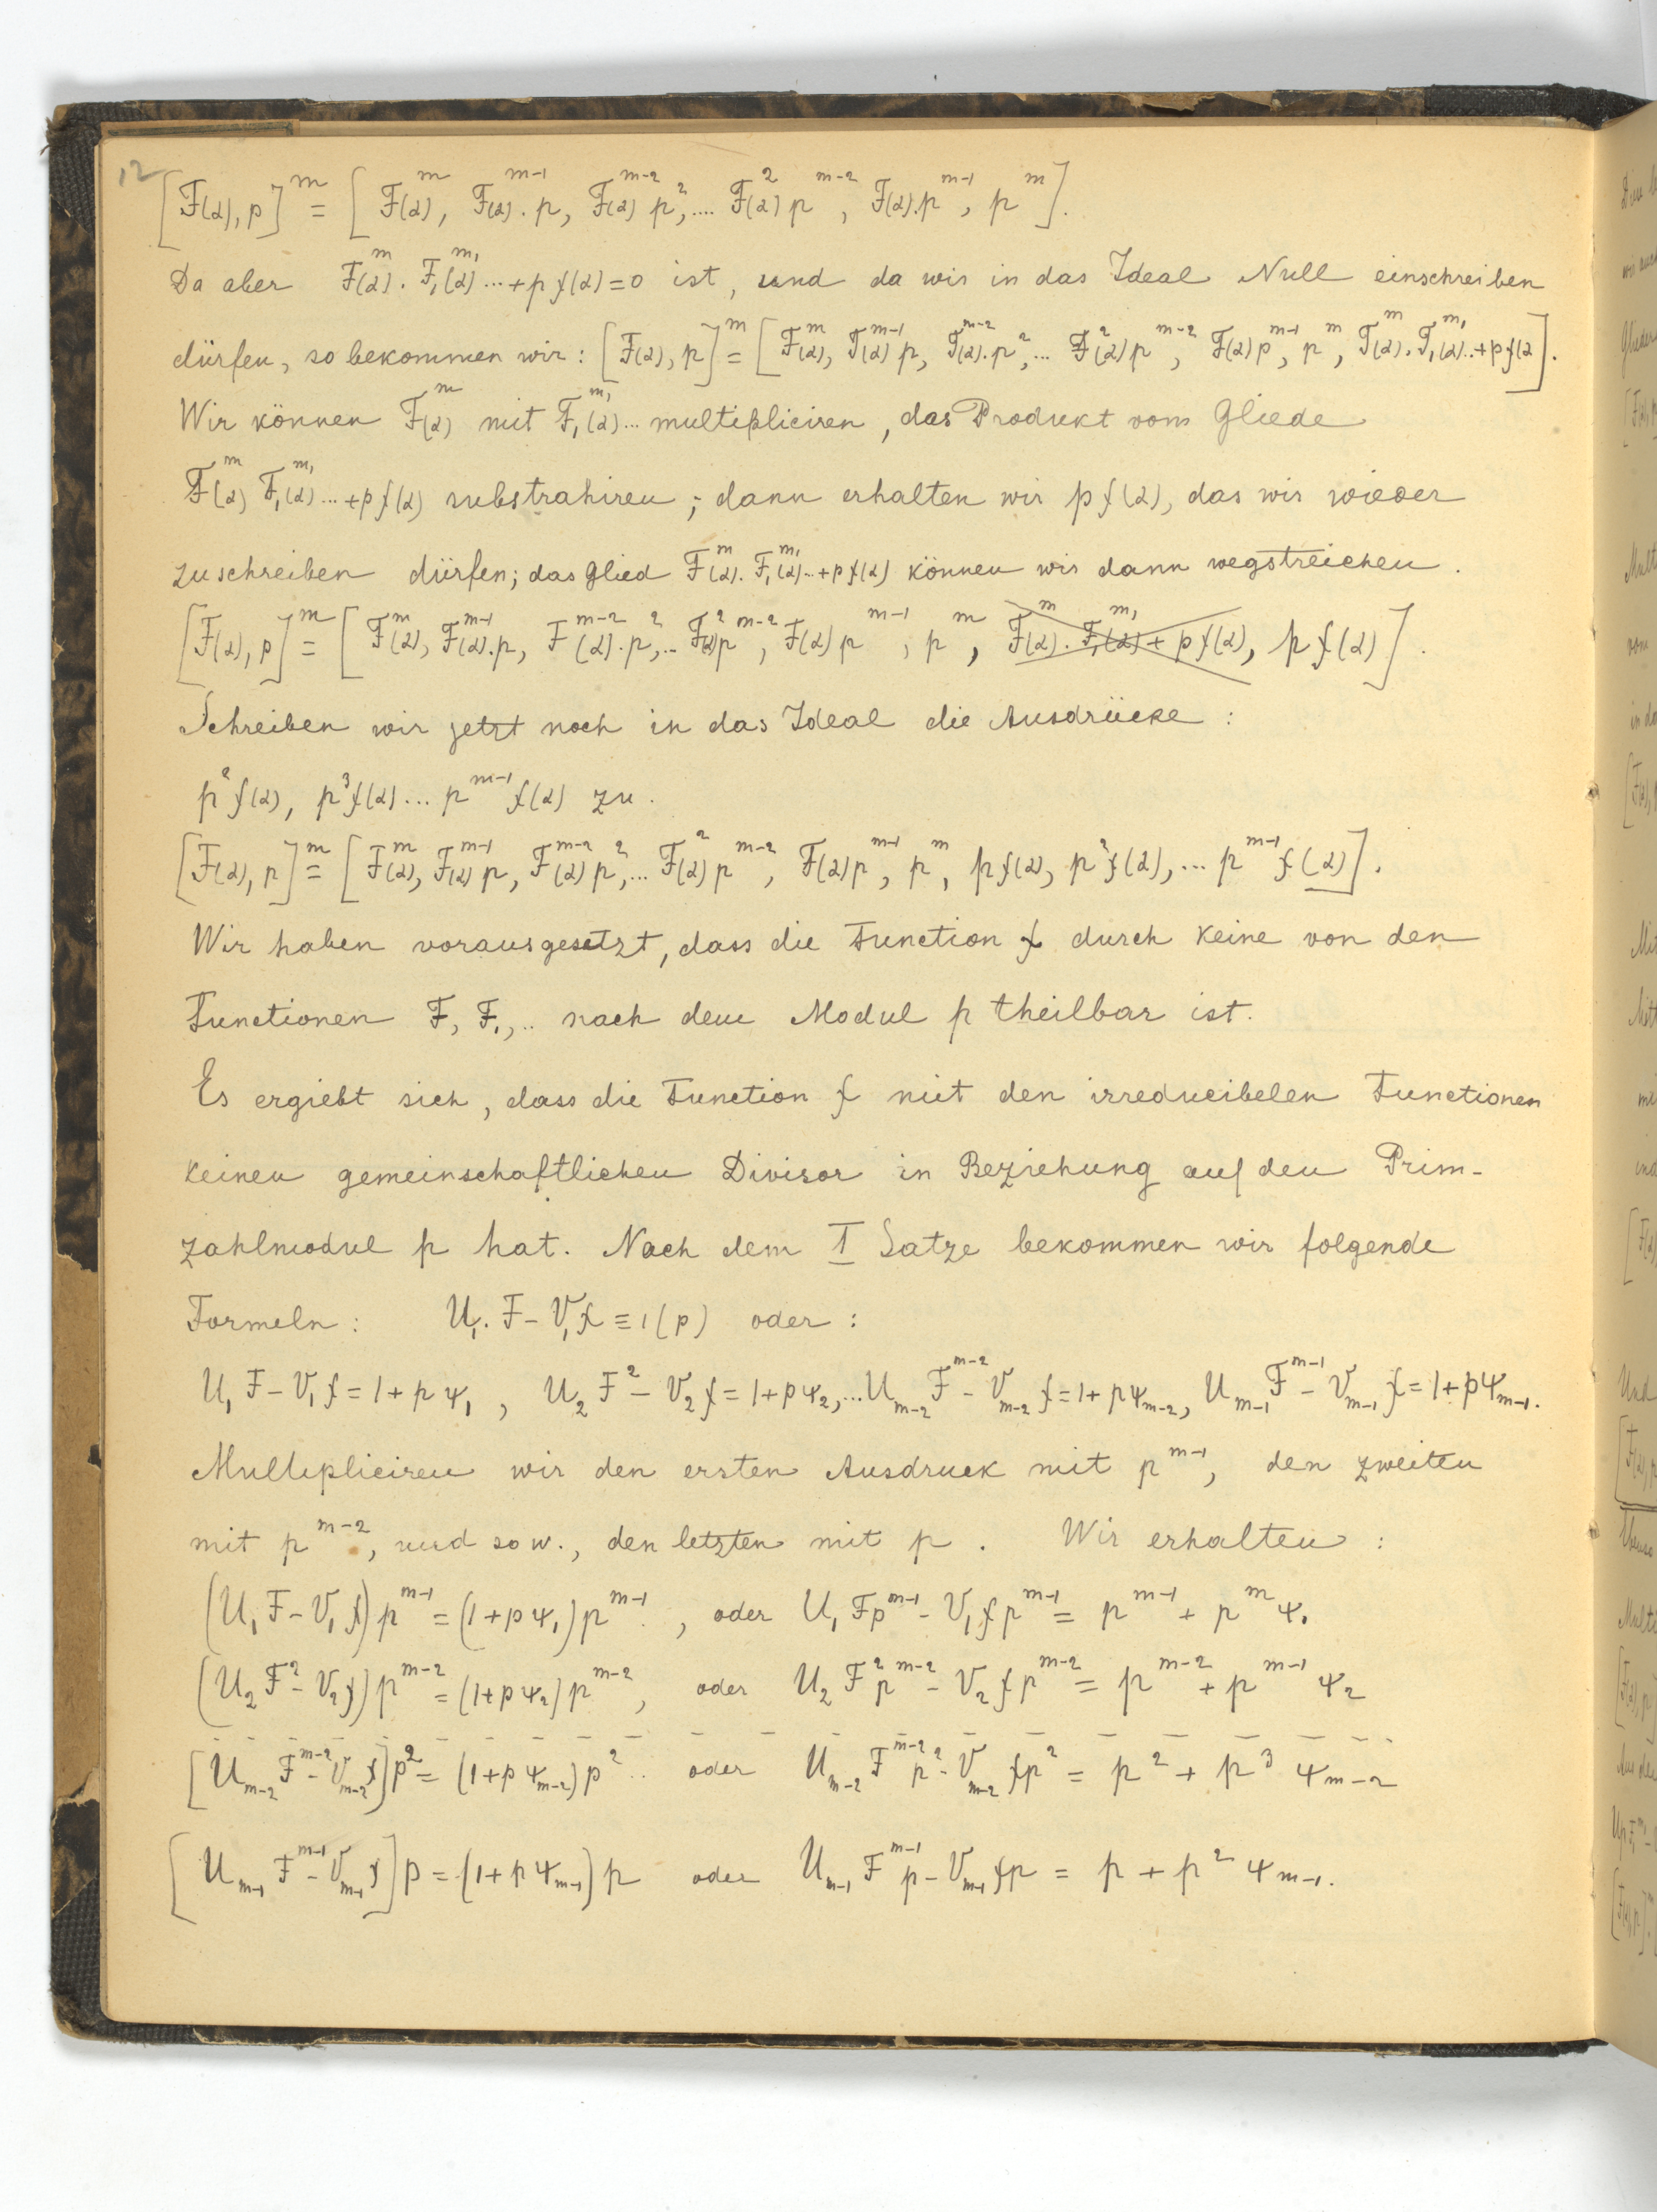 12
[F(α), p]^m = [F(α)^m, F(α)^{m-1}. p, F(α)^{m-2} p^2, .... F(α)^2 p^{m-2}, F(α).p^{m-1}, p^m].
Da aber F(α)^m. F₁(α)^{m₁}...+p f(α)=0 ist, und da wir in das Ideal Null einschreiben
dürfen, so bekommen wir: [F(α), p]^m = [F(α)^m, F(α)^{m-1} p, F(α)^{m-2}.p^2, ... F(α)^2 p^{m-2}, F(α) p^{m-1}, p^m, F(α)^m. F₁(α)^{m₁}..+p f(α].
Wir können F(α)^m mit F₁(α)^{m₁}... multipliciren, das Produkt vom Gliede
F(α)^m F₁(α)^{m₁}...+p f(α) substrahiren; dann erhalten wir p f(α), das wir wieder
zuschreiben dürfen; das Glied F(α)^m. F₁(α)^{m₁}..+p f(α) können wir dann wegstreichen.
[F(α), p]^m = [F(α)^m, F(α)^{m-1}.p, F(α)^{m-2}.p^2, .. F(α)^2 p^{m-2}, F(α) p^{m-1}, p^m, F(α)^m. F₁(α)^{m₁} + p f(α), p f(α)].
Schreiben wir jetzt noch in das Ideal die Ausdrücke:
p^2 f(α), p^3 f(α)... p^{m-1} f(α) zu.
[F(α), p]^m = [F(α)^m, F(α)^{m-1} p, F(α)^{m-2} p^2, ... F(α)^2 p^{m-2}, F(α) p^{m-1}, p^m, p f(α), p^2 f(α), ... p^{m-1} f(α)].
Wir haben vorausgesetzt, dass die Function f durch keine von den
Functionen F, F₁,.. nach dem Modul p theilbar ist.
Es ergiebt sich, dass die Function f mit den irreducibelen Functionen
keinen gemeinschaftlichen Divisor in Beziehung auf den Prim-
zahlmodul p hat. Nach dem I Satze bekommen wir folgende
Formeln: U₁. F - V₁ f ≡ 1 (p) oder:
U₁ F - V₁ f = 1 + p ψ₁, U₂ F^2 - V₂ f = 1 + p ψ₂, ... U_{m-2} F^{m-2} - V_{m-2} f = 1 + p ψ_{m-2}, U_{m-1} F^{m-1} - V_{m-1} f = 1 + p ψ_{m-1}.
Multipliciren wir den ersten Ausdruck mit p^{m-1}, den zweiten
mit p^{m-2}, und so w., den letzten mit p. Wir erhalten:
(U₁ F - V₁ f) p^{m-1} = (1 + p ψ₁) p^{m-1}, oder U₁ F p^{m-1} - V₁ f p^{m-1} = p^{m-1} + p^m ψ₁
(U₂ F^2 - V₂ f) p^{m-2} = (1 + p ψ₂) p^{m-2}, oder U₂ F^2 p^{m-2} - V₂ f p^{m-2} = p^{m-2} + p^{m-1} ψ₂
[U_{m-2} F^{m-2} - V_{m-2} f] p^2 = (1 + p ψ_{m-2}) p^2 .. oder U_{m-2} F^{m-2} p^2 - V_{m-2} f p^2 = p^2 + p^3 ψ_{m-2}
[U_{m-1} F^{m-1} - V_{m-1} f] p = (1 + p ψ_{m-1}) p oder U_{m-1} F^{m-1} p - V_{m-1} f p = p + p^2 ψ_{m-1}.